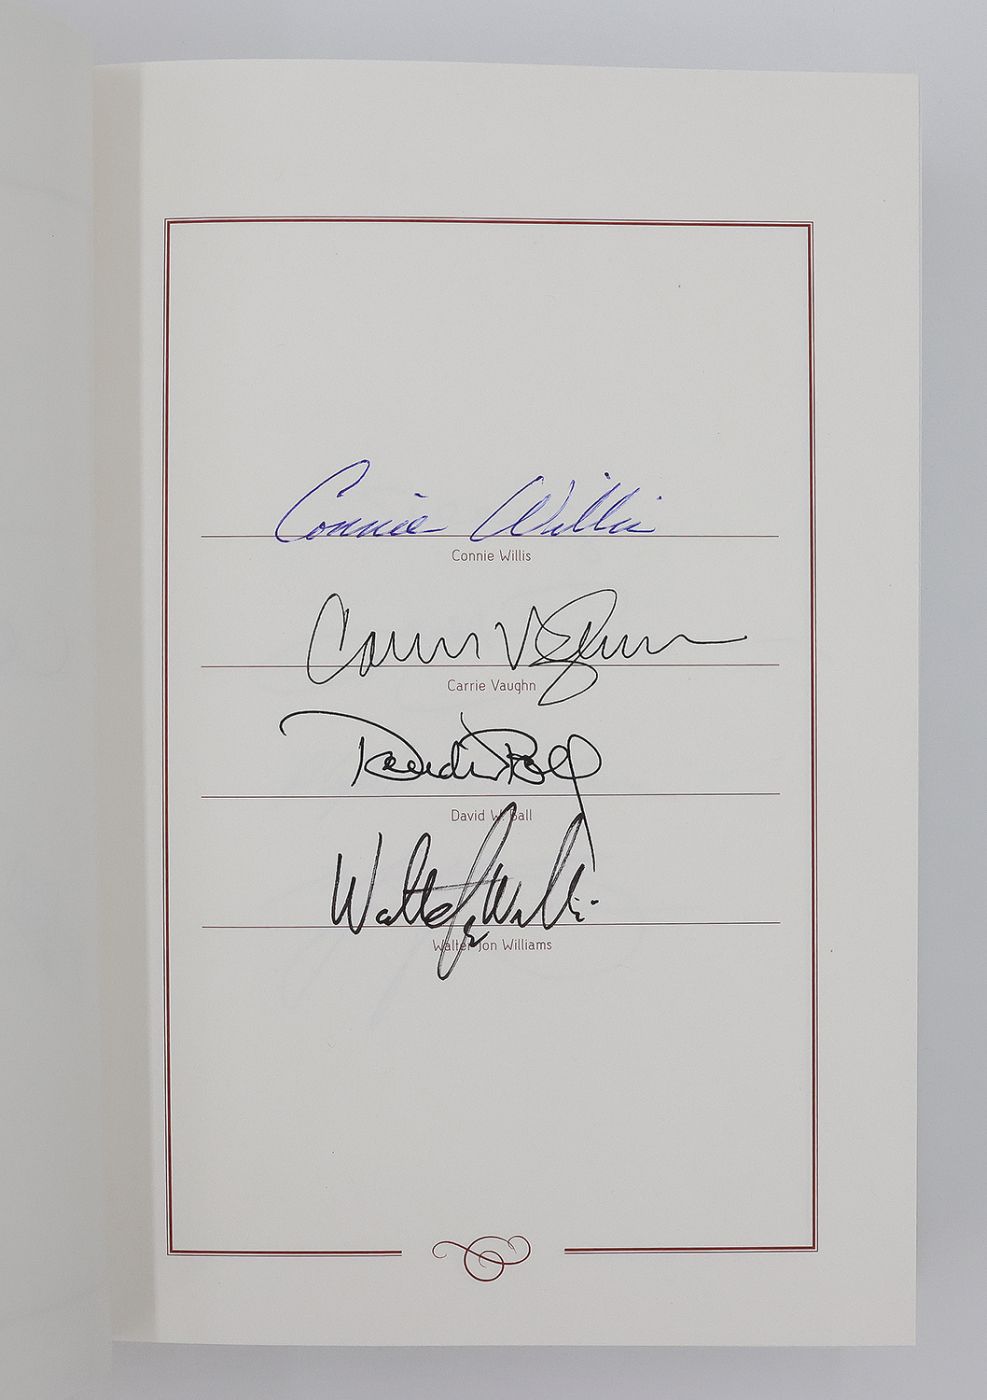 Connie Willis
Connie Willis
Carrie Vaughn
Carrie Vaughn
David W. Ball
David W. Ball
Walter Jon Williams
Walter Jon Williams